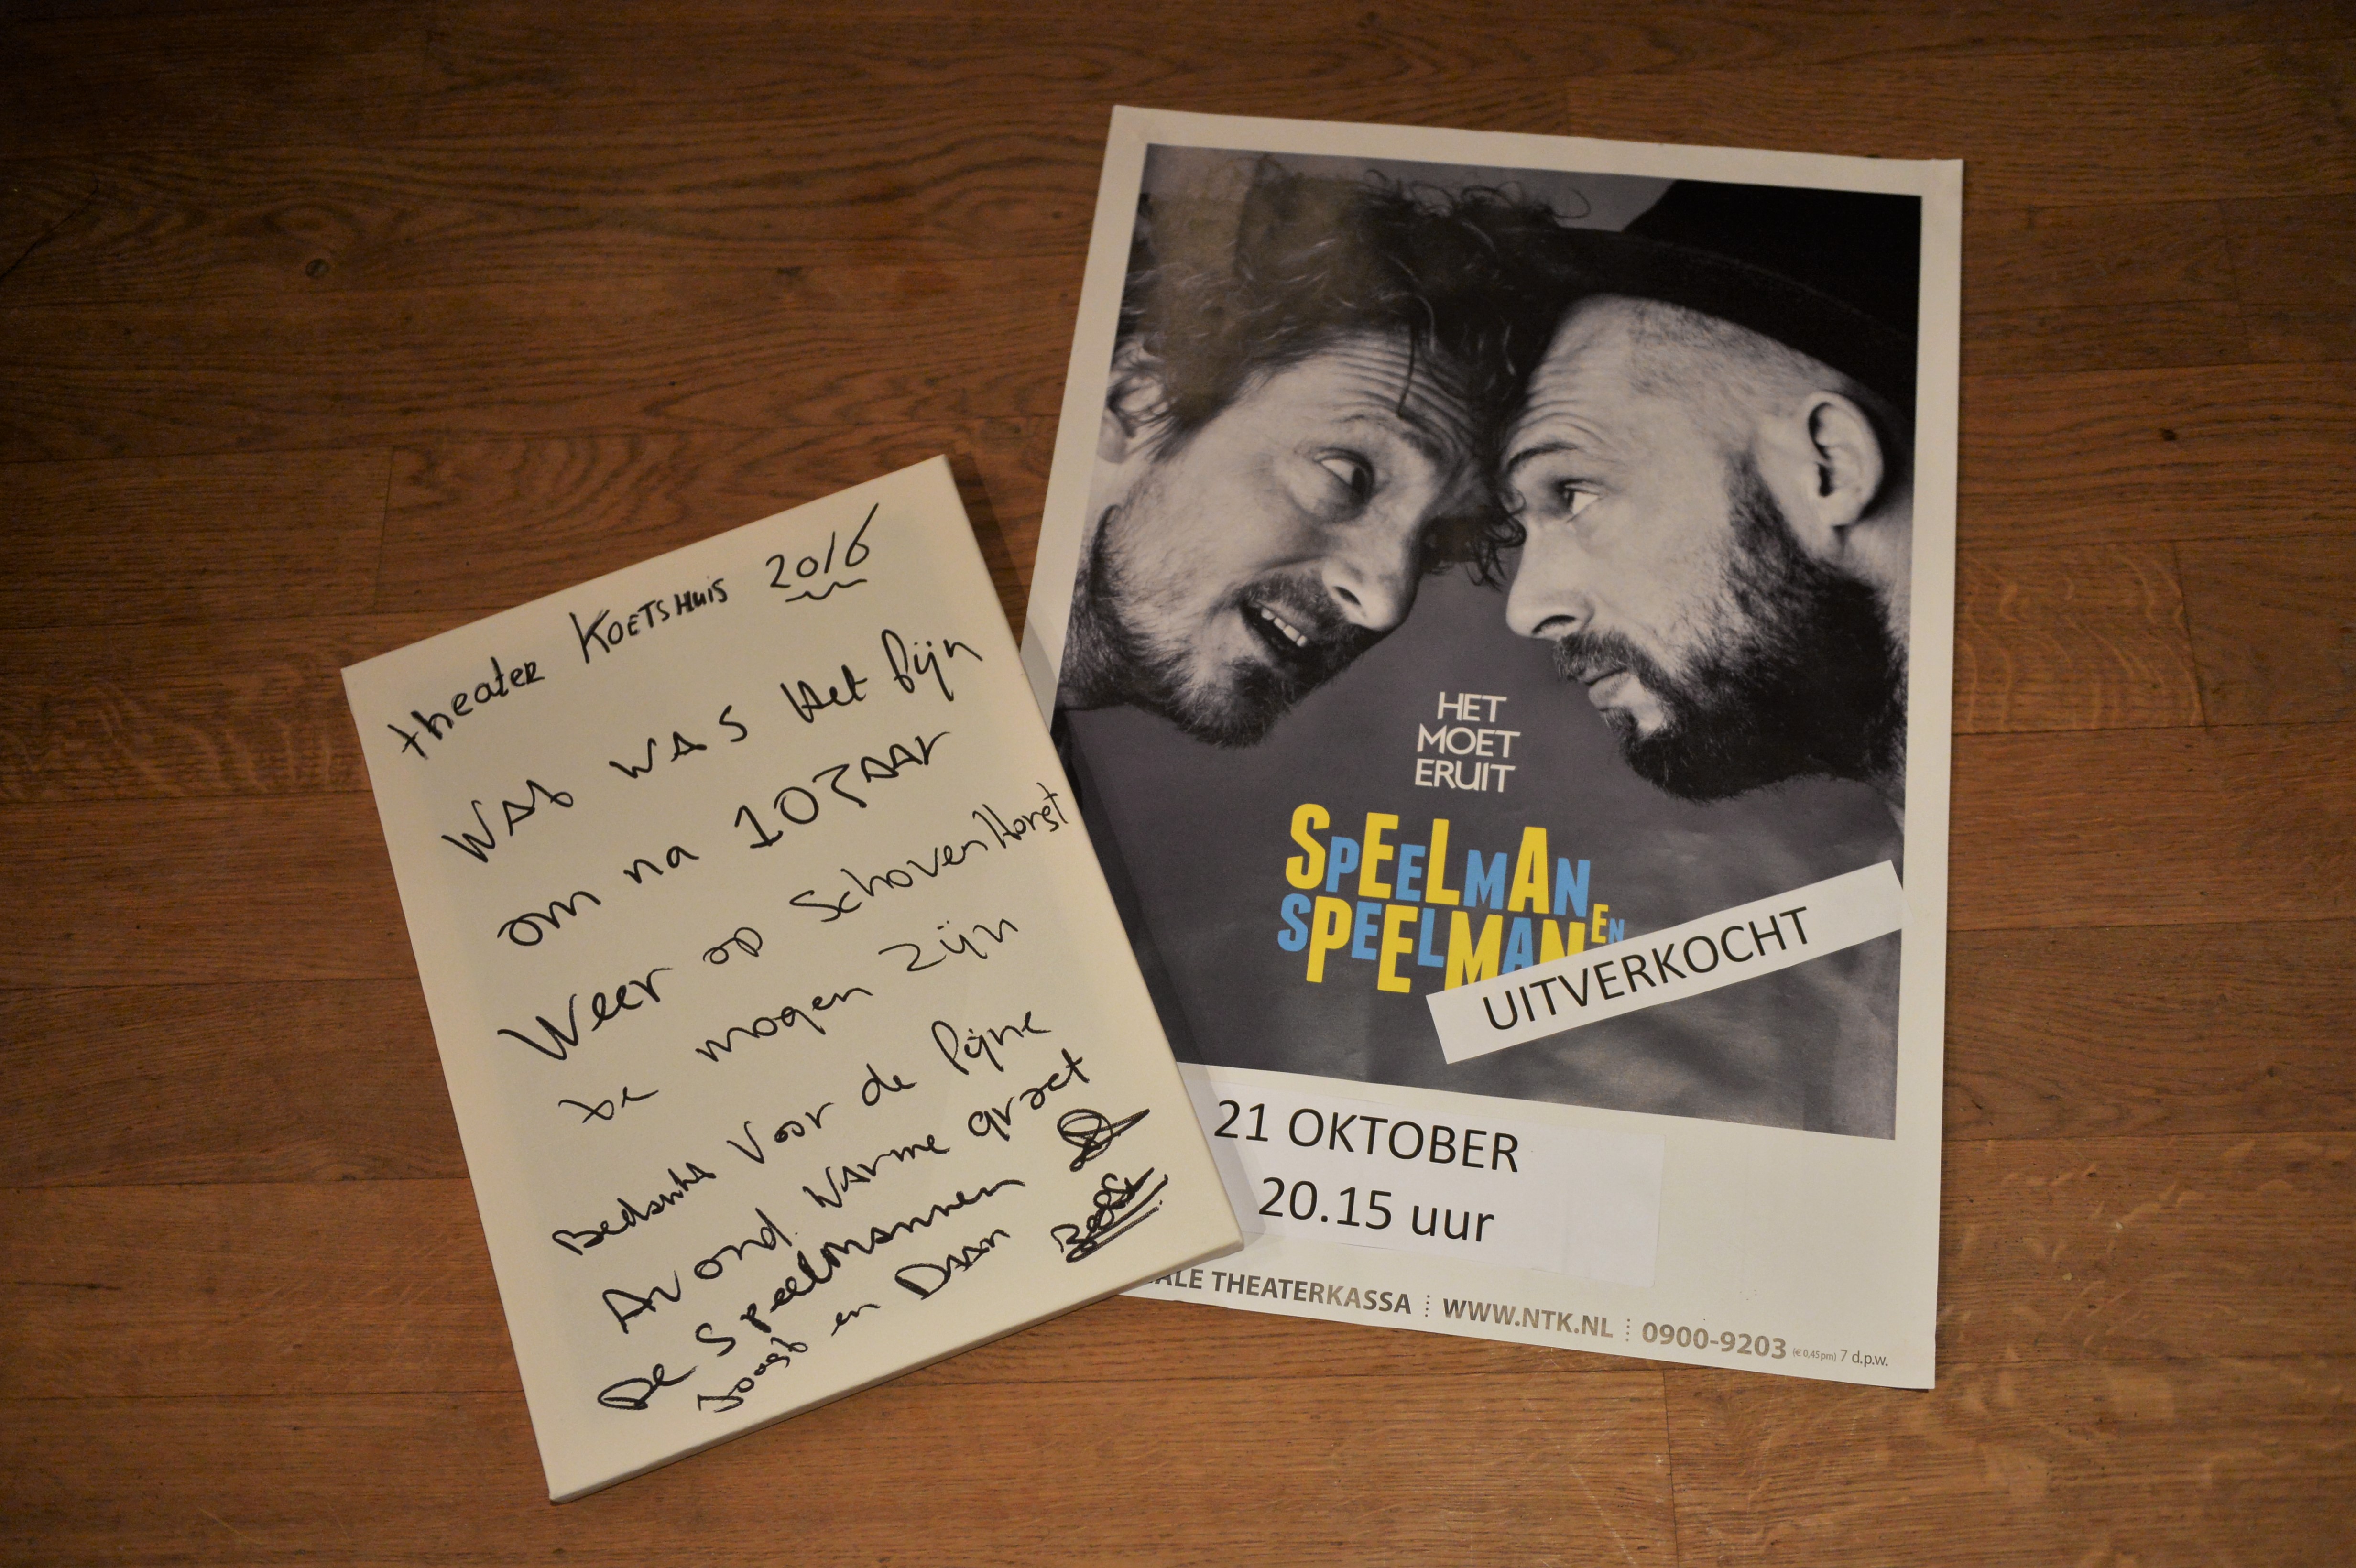 theater KOETSHUIS 2016
WAT WAS Het fijn
om na 10 JAAR
Weer op SchovenHorst
te mogen zijn
Bedankt voor de fijne
Avond. WArme groet
De Speelmannen
Joost en DAAn
HET
MOET
ERUIT
SPEELMAN EN
SPEELMAN
UITVERKOCHT
21 OKTOBER
20.15 uur
ALE THEATERKASSA WWW.NTK.NL 0900-9203 (€ 0,45pm) 7 d.p.w.